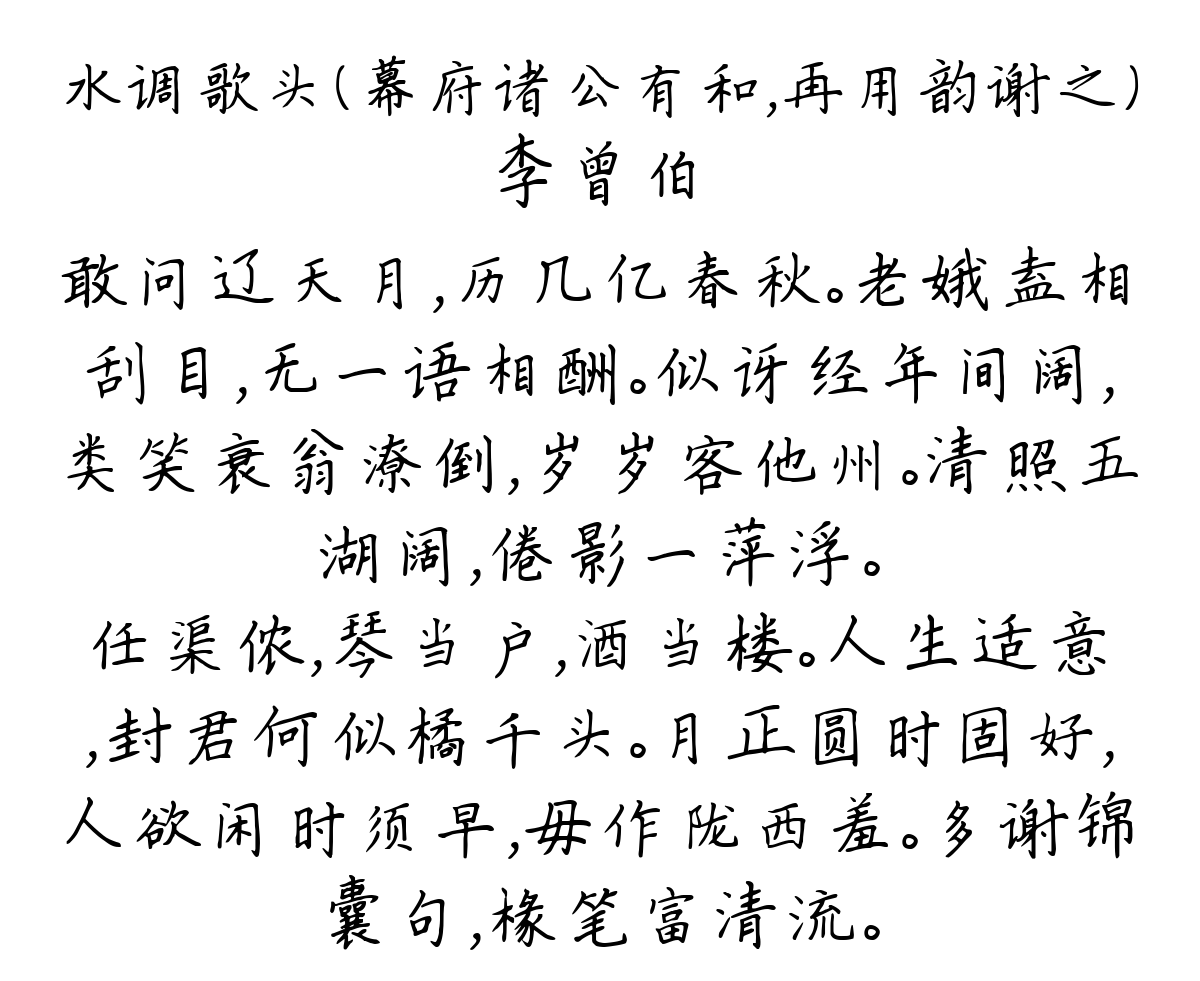 水调歌头(幕府诸公有和,再用韵谢之)
李曾伯
敢问辽天月,历几亿春秋。老娥盍相
刮目,无一语相酬。似讶经年间阔,
类笑衰翁潦倒,岁岁客他州。清照五
湖阔,倦影一萍浮。
任渠侬,琴当户,酒当楼。人生适意
,封君何似橘千头。月正圆时固好,
人欲闲时须早,毋作陇西羞。多谢锦
囊句,椽笔富清流。